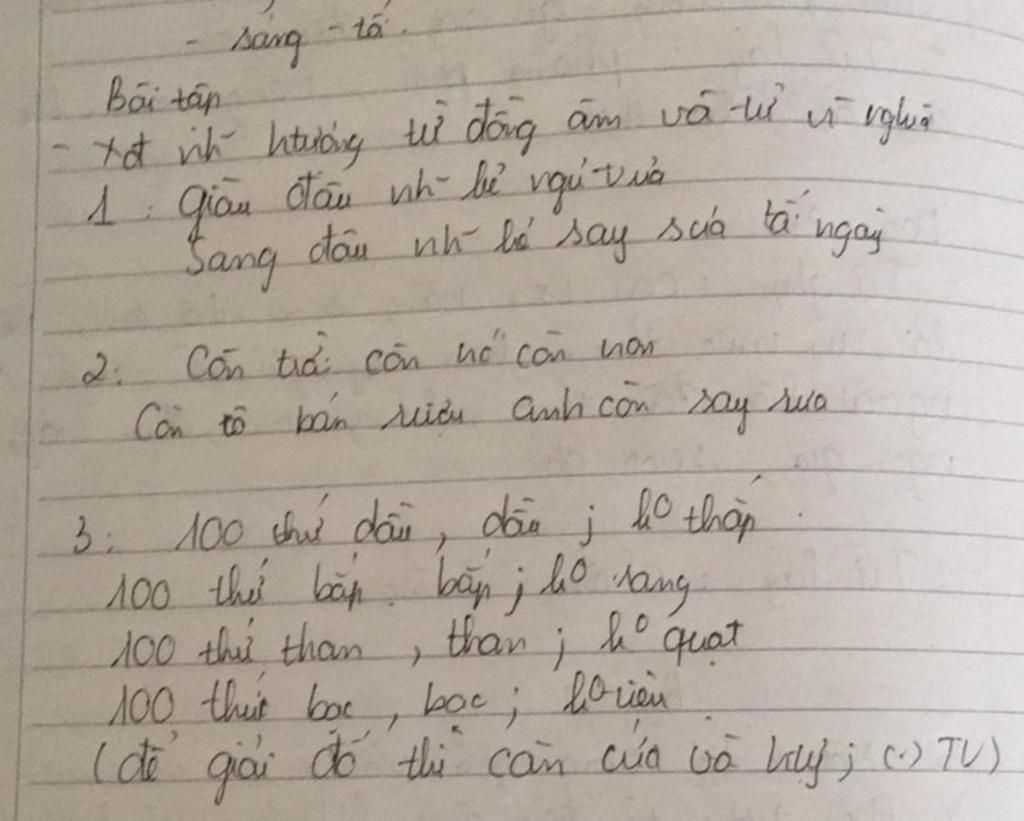 - sáng - tấ
Bāi tāp
- xđ nh~ htượng từ đồng âm và từ n~ nghĩa
1. Giàu đâu nh~ kẻ ngủ trưa
Sang đâu nh~ kẻ say sưa tấ ngày
2. Còn trời còn nc còn non
Còn cô bán rượu anh còn say sưa
3. 100 thứ dầu, dầu j k0 thắp
100 thứ bắp. bắp j k0 rang
100 thứ than, than j k0 quạt
100 thứ bạc, bạc j k0
(để giải đố thì cần cứ vào j (.) TV)